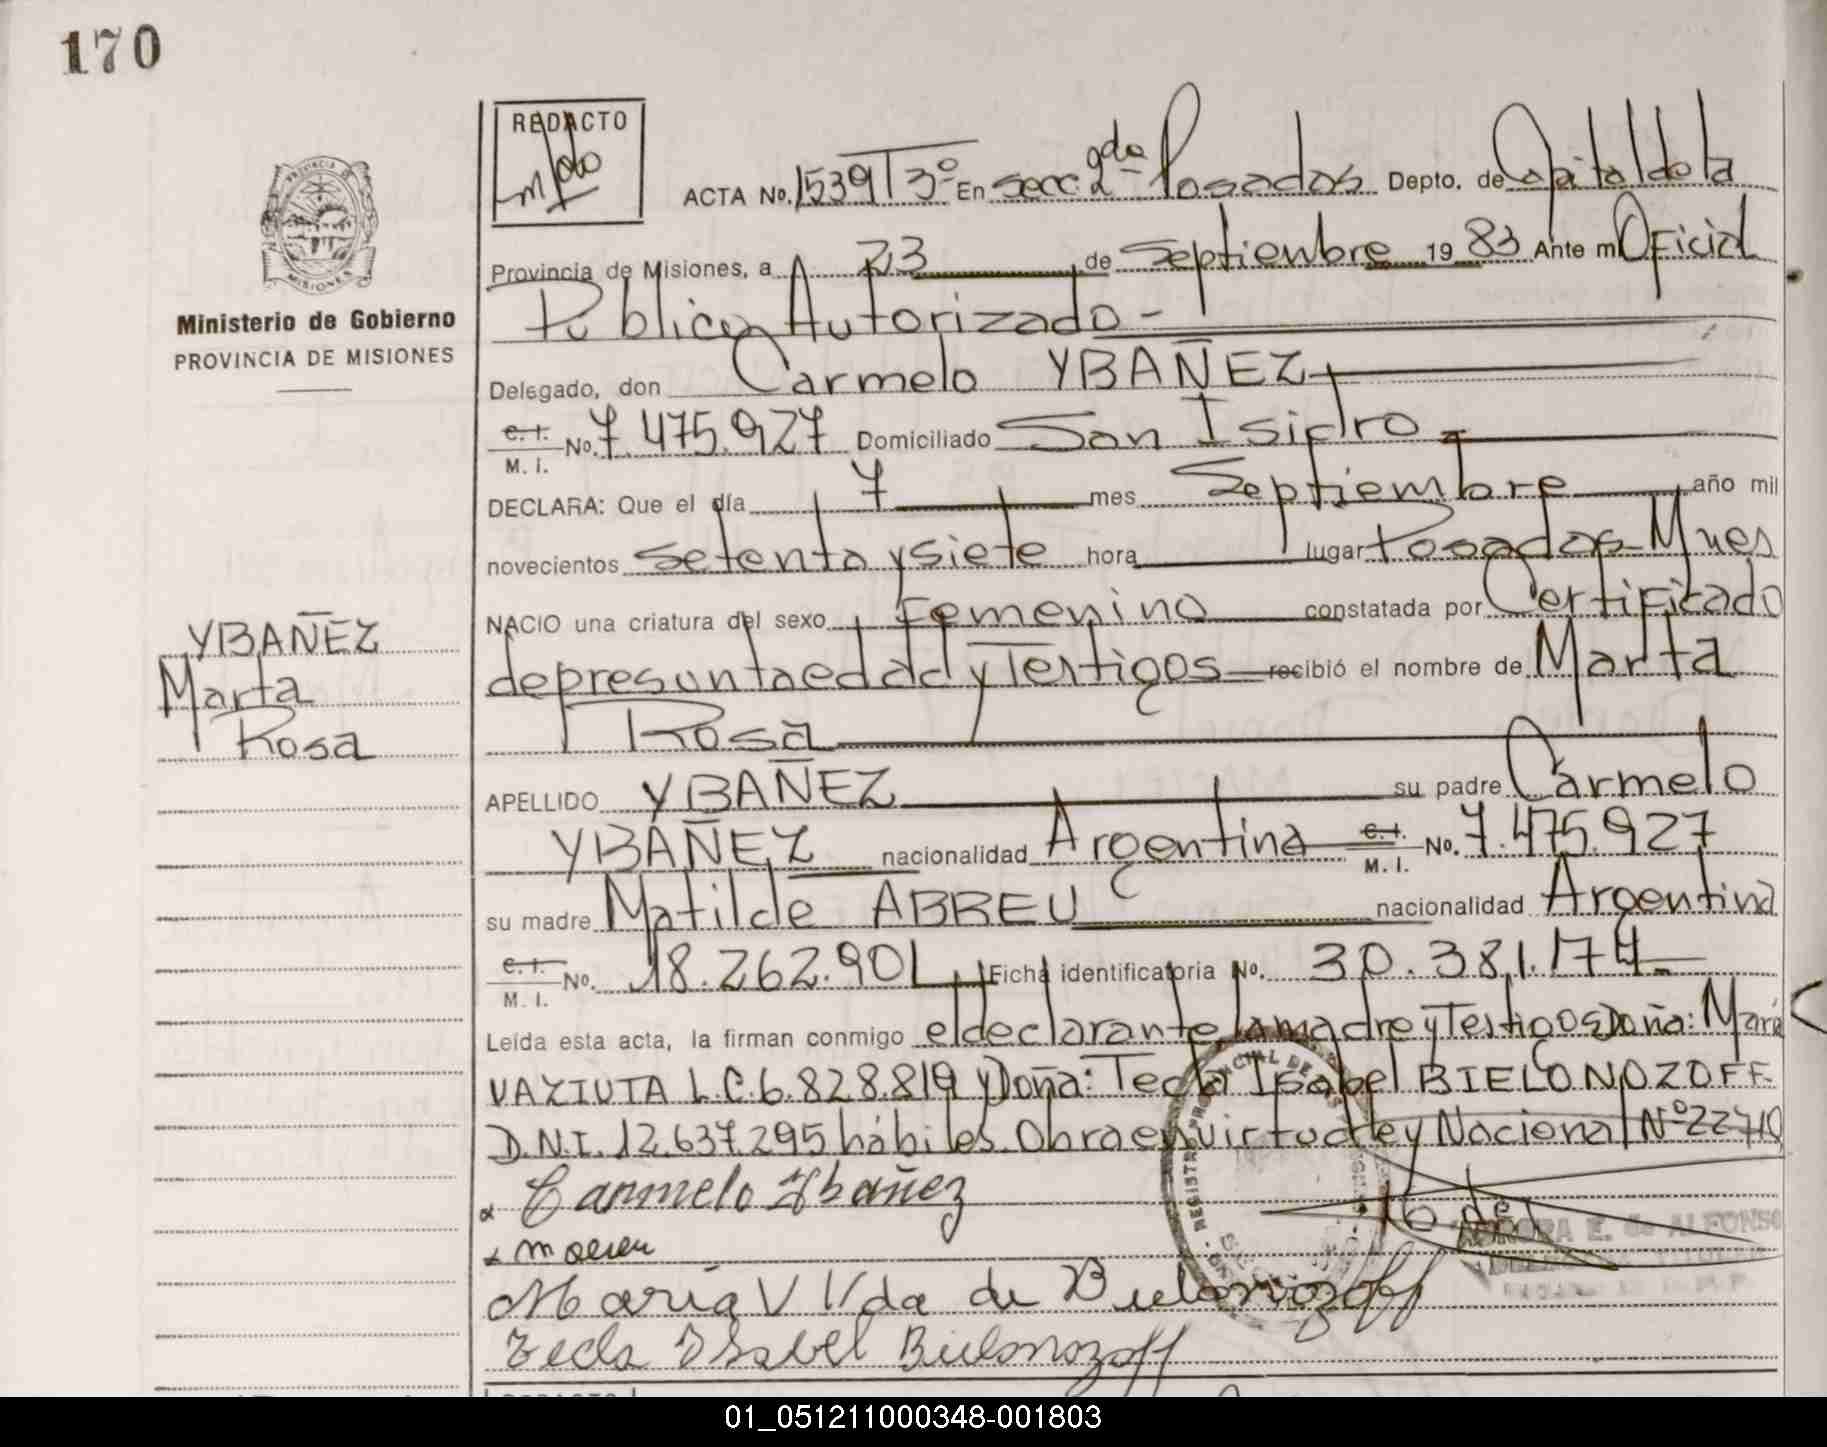 170
REDACTO
ACTA No. 1539 T 3º En secc. 2da Posadas Depto. de Capital de la
Provincia de Misiones, a 23 de Septiembre 19 83 Ante mi Oficial
Publico Autorizado -
Delegado, don Carmelo YBAÑEZ
C. I.
M. I. No. 7.475.927 Domiciliado San Isidro
DECLARA: Que el día 7 mes Septiembre año mil
novecientos setenta y siete hora lugar Posadas - Mnes
NACIO una criatura del sexo Femenino constatada por Certificado
de presunta edad y Testigos recibió el nombre de Marta
Rosa
APELLIDO YBAÑEZ su padre Carmelo
YBAÑEZ nacionalidad Argentina C. I. M. I. No. 7.475.927
su madre Matilde ABREU nacionalidad Argentina
C. I.
M. I. No. 18.262.901 Ficha identificatoria No. 30.381.174.-
Leída esta acta, la firman conmigo el declarante, la madre y Testigos Doña: María
VAZIUTA L.C. 6.828.819 y Doña: Tecla Isabel BIELONOZOFF
D.N.I. 12.637.295 hábiles. Obra en virtud Ley Nacional Nº 22710
Carmelo Ybañez
María V Vda de Bielonozoff
Tecla Isabel Bielonozoff
E. de ALFONSO
PROVINCIA DE
MISIONES
Ministerio de Gobierno
PROVINCIA DE MISIONES
YBAÑEZ
Marta
Rosa
REDACTO
01_051211000348-001803